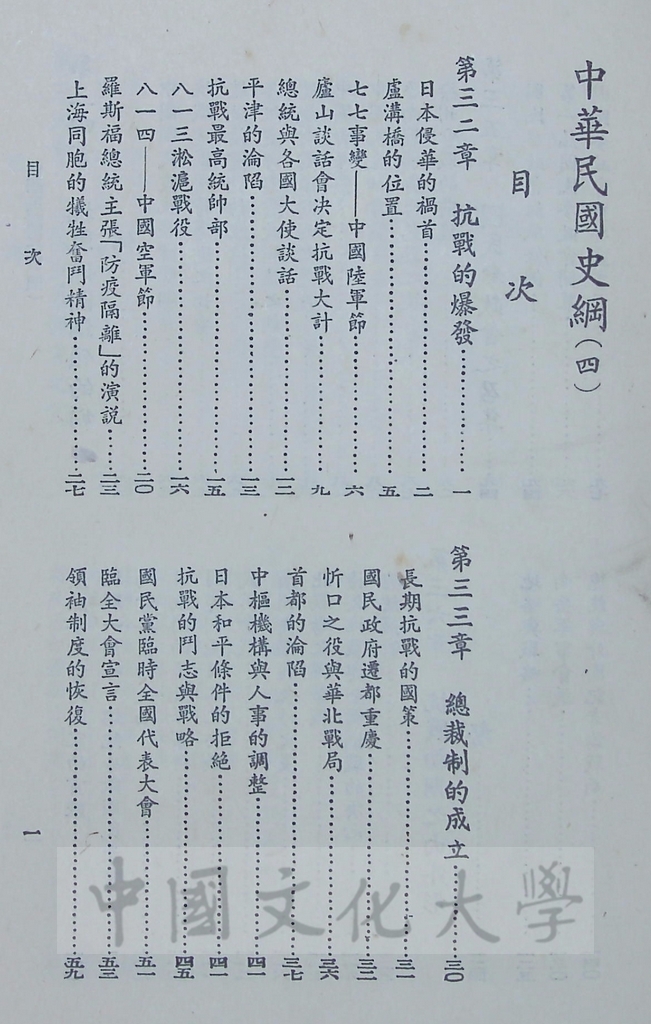 中華民國史綱(四)
目次
第三二章 抗戰的爆發……一
日本侵華的禍首……二
盧溝橋的位置……五
七七事變——中國陸軍節……六
廬山談話會决定抗戰大計……九
總統與各國大使談話……一二
平津的淪陷……一三
抗戰最高統帥部……一五
八一三淞滬戰役……一六
八一四——中國空軍節……二〇
羅斯福總統主張「防疫隔離」的演說……二三
上海同胞的犧牲奮鬥精神……二七
第三三章 總裁制的成立……三〇
長期抗戰的國策……三一
國民政府遷都重慶……三二
忻口之役與華北戰局……三六
首都的淪陷……三七
中樞機構與人事的調整……四一
日本和平條件的拒絕……四一
抗戰的鬥志與戰略……四五
國民黨臨時全國代表大會……五一
臨全大會宣言……五三
領袖制度的恢復……五九
目次
一
中國文化大學